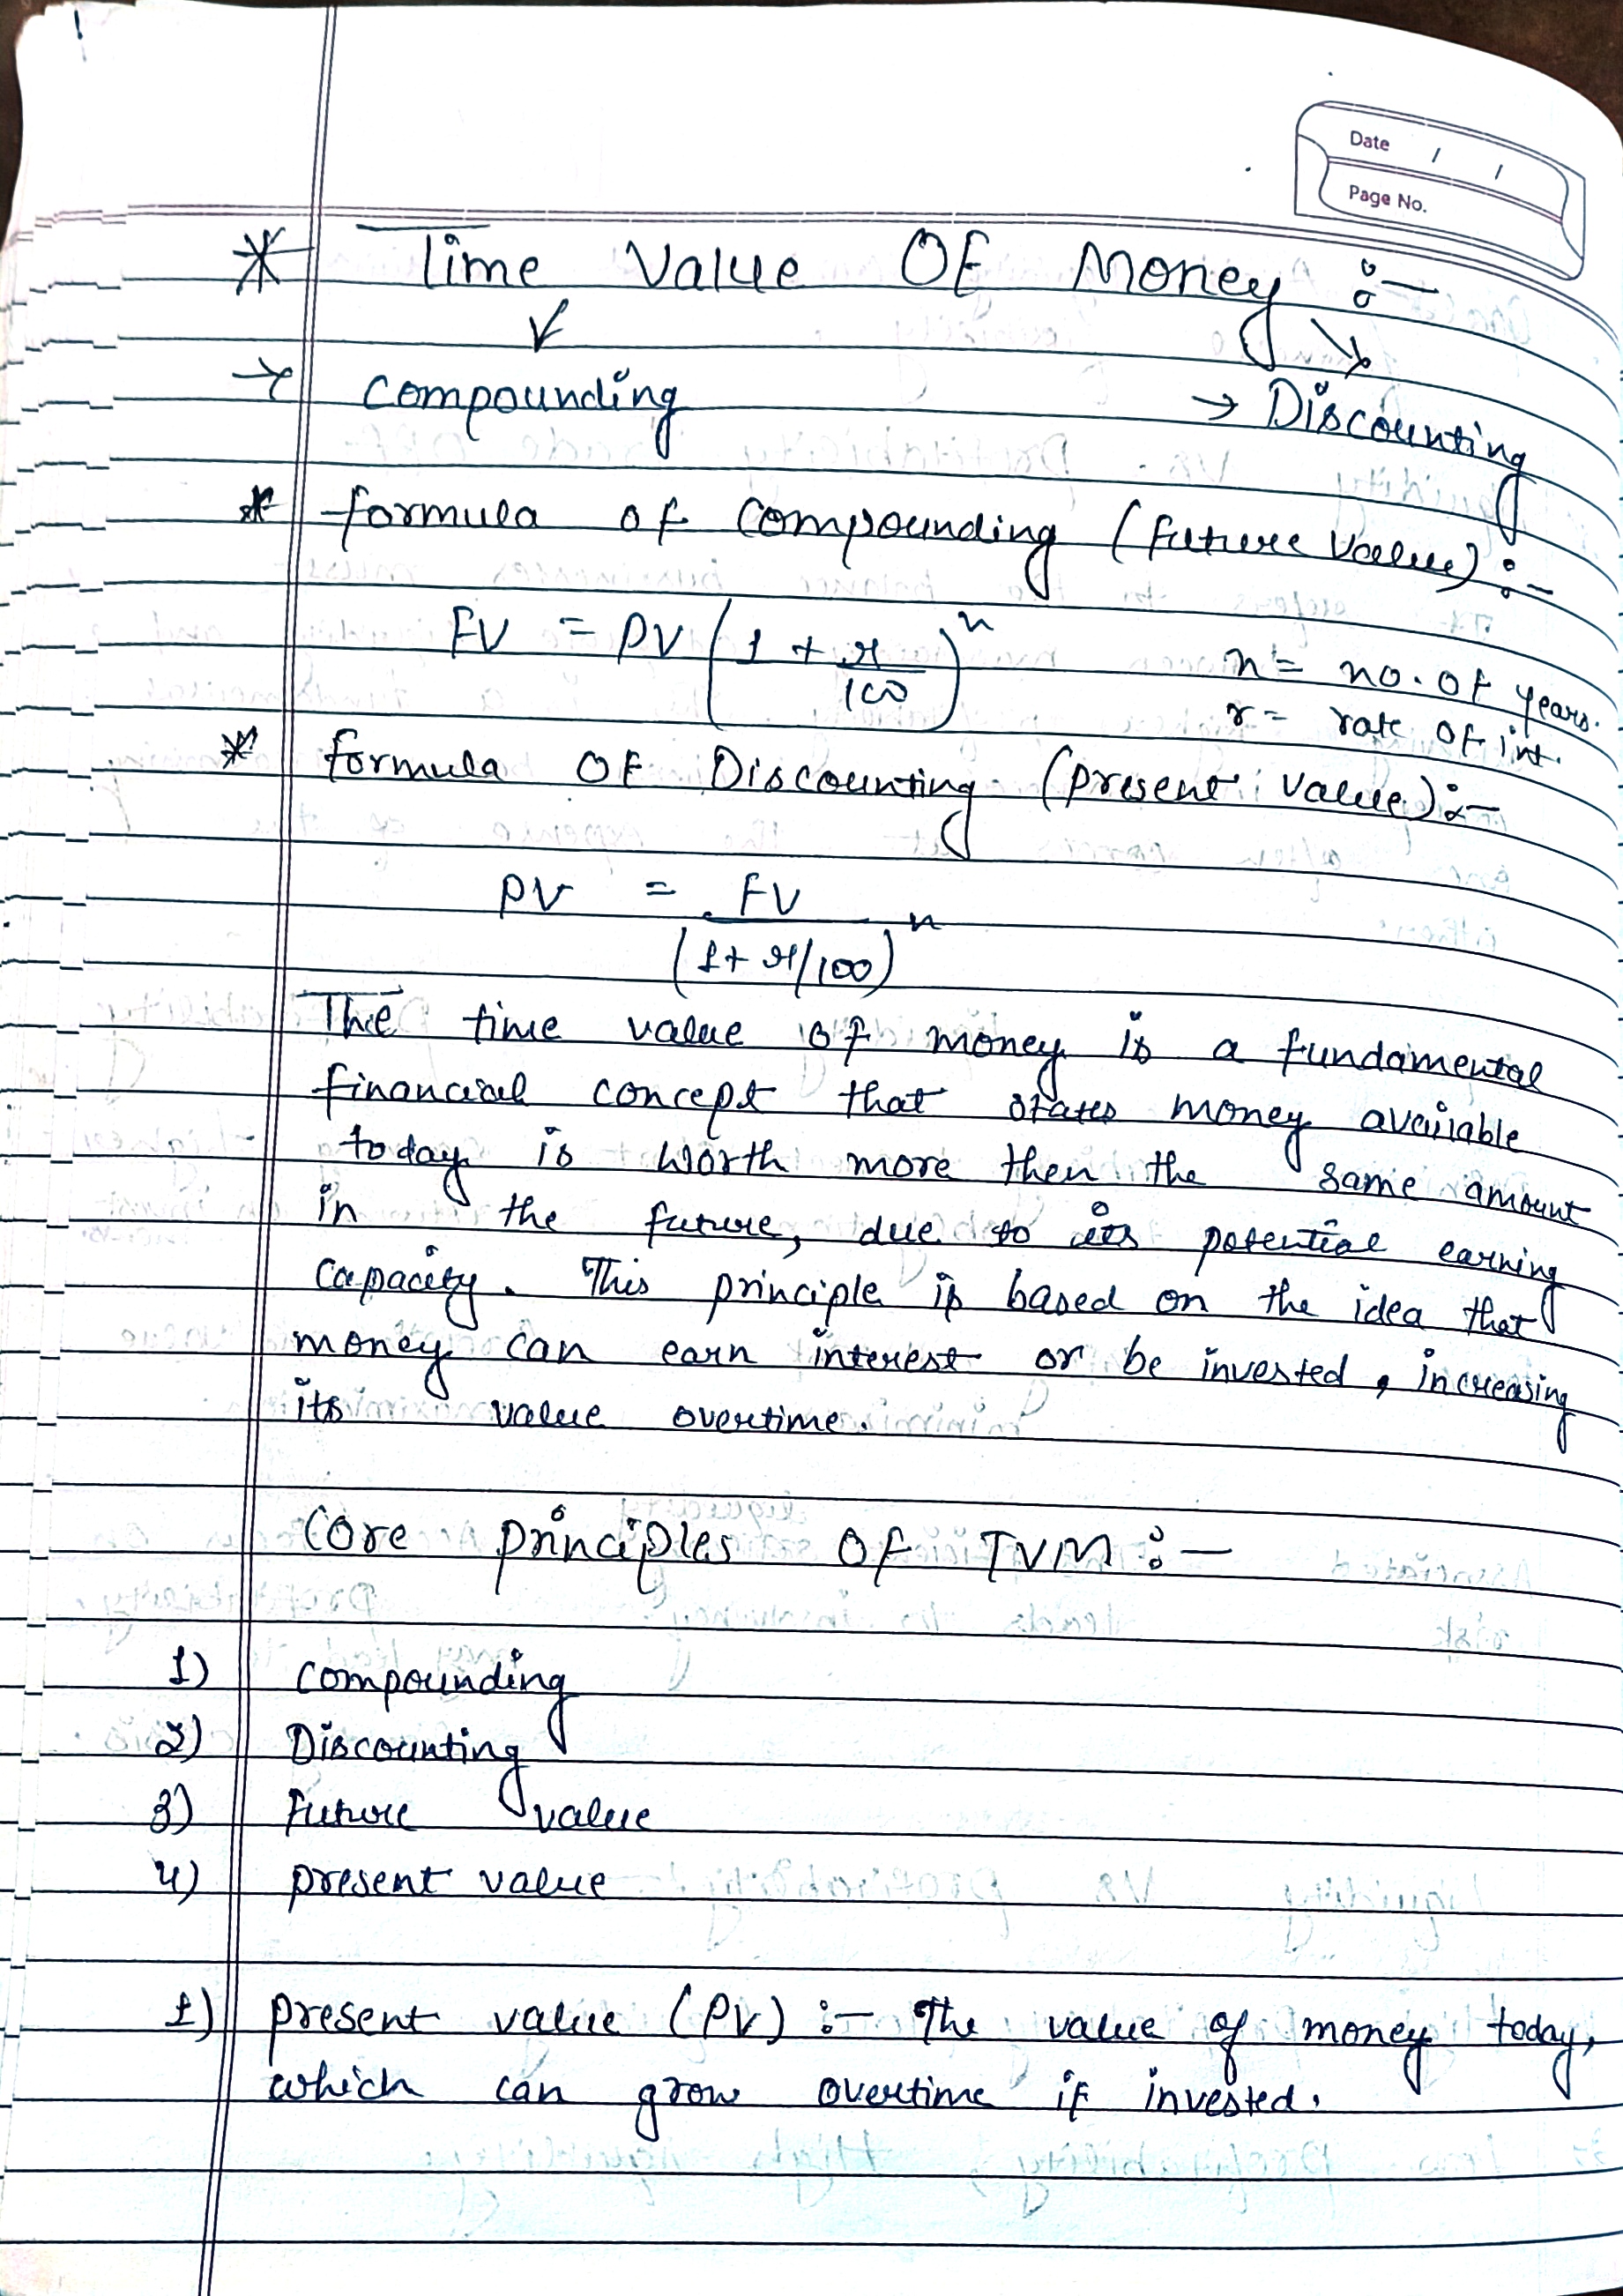 Date / /
Page No.
* Time Value OF Money :-
→ Compounding → Discounting
* formula of Compounding (future Value) :-
FV = PV (1 + r/100)^n
n = no. of years.
r = rate of int.
* formula OF Discounting (present value) :-
PV = FV / (1 + r/100)^n
The time value of money is a fundamental
financial concept that states money available
today is worth more then the same amount
in the future, due to its potential earning
capacity. This principle is based on the idea that
money can earn interest or be invested, increasing
its value overtime.
Core principles OF TVM :-
1) Compounding
2) Discounting
3) future value
4) present value
1) present value (PV) :- The value of money today,
which can grow overtime if invested.